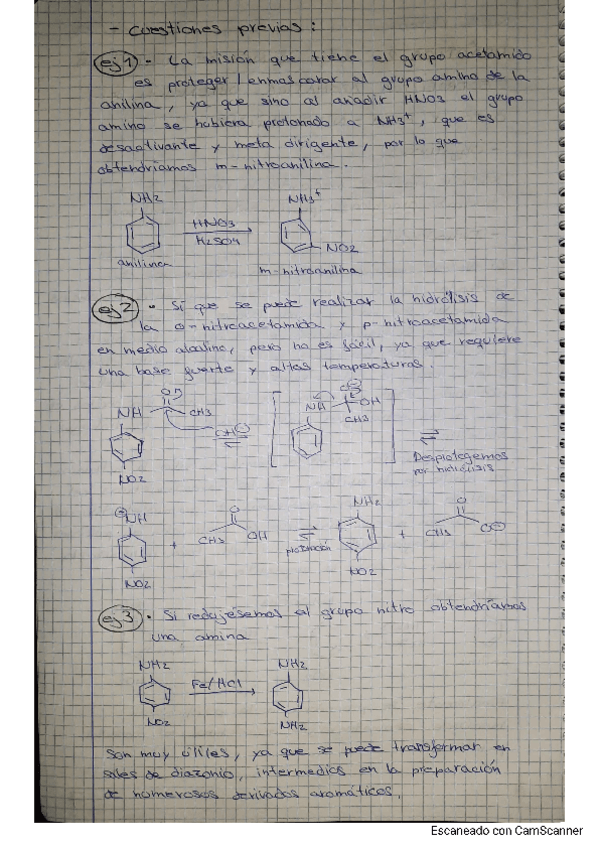 - Cuestiones previas:
ej 1 • La misión que tiene el grupo acetamido
es proteger / enmascarar al grupo amino de la
anilina, ya que sino al añadir HNO3 el grupo
amino se hubiera protonado a NH3+, que es
desactivante y meta dirigente, por lo que
obtendríamos m-nitroanilina.
NH2 NH3+
HNO3
H2SO4
NO2
anilina m-nitroanilina
ej 2 • Si que se puede realizar la hidrólisis de
la o-nitroacetamida y p-nitroacetamida
en medio alcalino, pero no es fácil, ya que requiere
una base fuerte y altas temperaturas.
O O
NH CH3 NH OH
OH CH3
NO2
Desprotegemos
por hidrólisis
NH O NH2 O
CH3 OH CH3 O
+ protonación +
NO2 NO2
ej 3 • Si redujesemos al grupo nitro obtendríamos
una amina
NH2 NH2
Fe/HCl
NO2 NH2
Son muy útiles, ya que se puede transformar en
sales de diazonio, intermedios en la preparación
de numerosos derivados aromáticos.
Escaneado con CamScanner